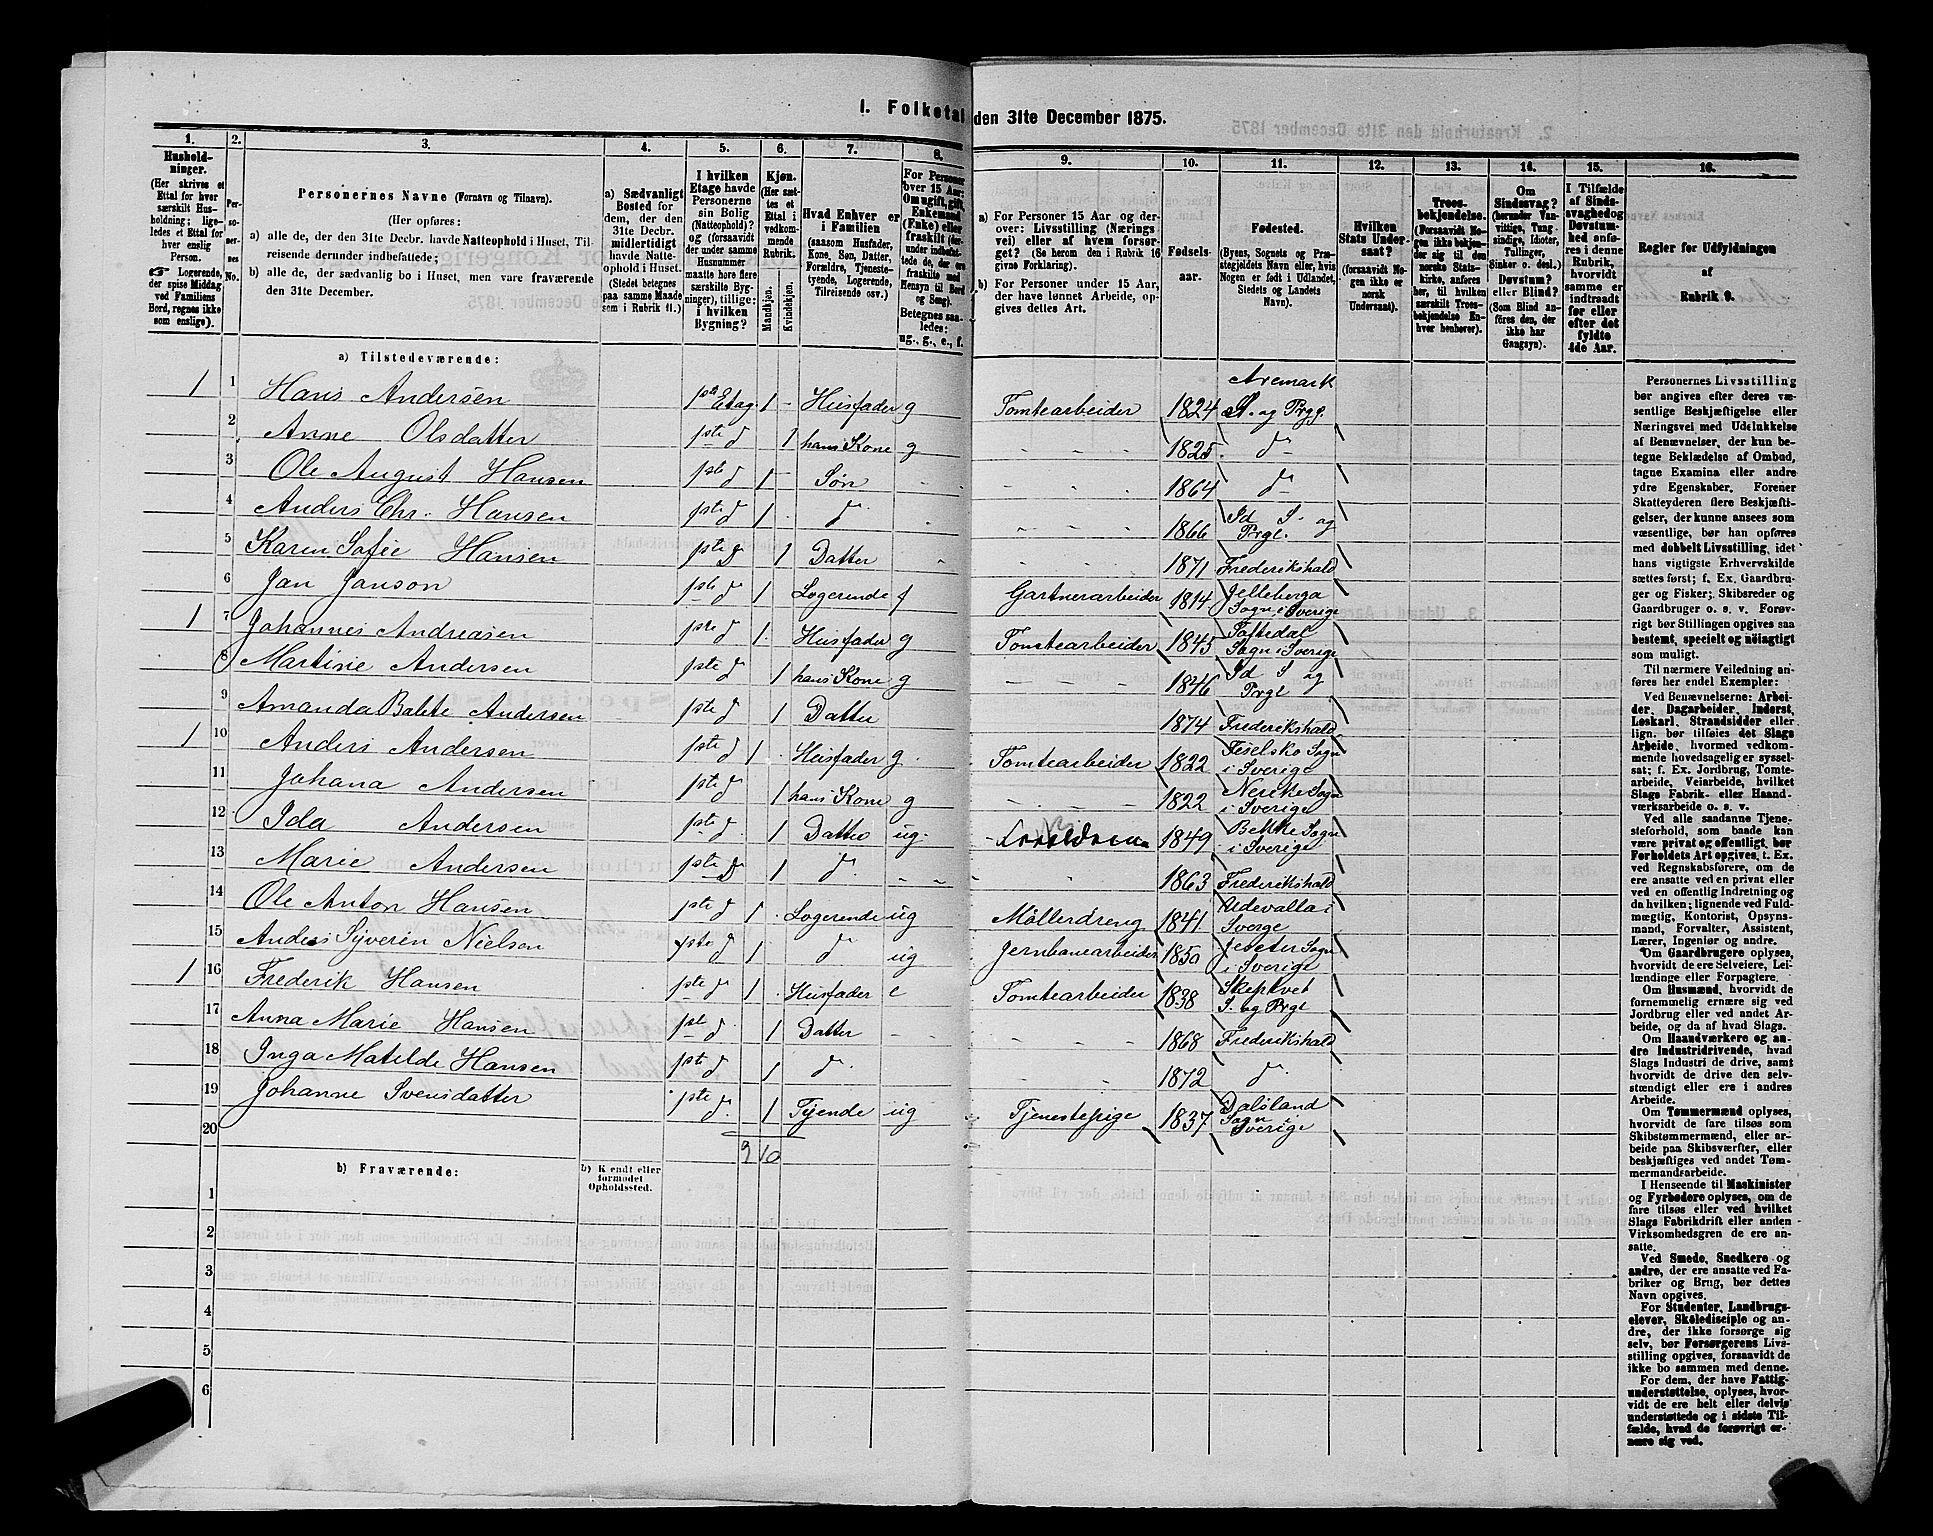 1. Folketal den 31te December 1875.
1. 2. 3. 4. 5. 6. 7. 8. 9. 10. 11. 12. 13. 14. 15. 16.
Husholdninger. (Her skrives et Ettal for hver særskilt Husholdning; ligeledes et Ettal for hver enslig Person. ☞ Logerende, der spise Middag ved Familiens Bord, regnes ikke som enslige).
Personernes No.
Personernes Navne (Fornavn og Tilnavn).
(Her opføres:
a) alle de, der den 31te Decbr. havde Natteophold i Huset, Tilreisende derunder indbefattede;
b) alle de, der sædvanlig bo i Huset, men vare fraværende den 31te December.
a) Sædvanligt Bosted for dem, der den 31te Decbr. midlertidigt havde Natteophold i Huset. (Stedet betegnes paa samme Maade som i Rubrik 11.)
I hvilken Etage havde Personerne sin Bolig (Natteophold)? og (forsaavidt der under samme Husnummer maatte høre flere særskilte Bygninger), tillige: i hvilken Bygning?
Kjøn. (Her sættes et Ettal i vedkommende Rubrik.
Mandkjøn. Kvindekjøn.
Hvad Enhver er i Familien (saasom Husfader, Kone, Søn, Datter, Forældre, Tjenestetyende, Logerende, Tilreisende osv.)
For Personer over 15 Aar: Om ugift, gift, Enkemand (Enke) eller fraskilt
Betegnes saaledes: ug., g., e., f.
a) For Personer 15 Aar og derover: Livsstilling (Næringsvei) eller af hvem forsørget? (Se herom den i Rubrik 16 givne Forklaring).
b) For Personer under 15 Aar, der have lønnet Arbeide, opgives dettes Art.
Fødselsaar.
Fødested. (Byens, Sognets og Præstegjeldets Navn eller, hvis Nogen er født i Udlandet, Stedets og Landets Navn).
Hvilken Stats Undersaat? (forsaavidt Nogen ikke er norsk Undersaat).
Troesbekjendelse. (Forsaavidt Nogen ikke bekjender sig til den norske Statskirke, anføres her, til hvilken særskilt Troesbekjendelse Enhver henhører).
Om Sindssvag? (herunder Vanvittige, Tungsindige, Idioter, Tullinger, Sinker o. desl.) Døvstum? eller Blind? (Som Blind anføres den, der ikke har Gangsyn).
I Tilfælde af Sindssvaghed og Døvstumhed anføres i denne Rubrik, hvorvidt samme er indtraadt før eller efter det fyldte 4de Aar.
Regler for Udfyldningen af Rubrik 9.
a) Tilstedeværende:
1 1 Hans Andersen 1ste Etag. 1 - Husfader g Tomtearbeider 1824 Aremark S. og Prgl.
2 Anne Olsdatter 1ste d 1 hans Kone g 1825 d
3 Ole August Hansen 1ste d 1 Søn 1864 d
4 Anders Chr. Hansen 1ste d 1 d 1866 Id S. og Prgl.
5 Karen Sofie Hansen 1ste d 1 Datter 1871 Frederikshald
6 Jan Janson 1ste d 1 Logerende f Gartnerarbeider 1814 Jelleberga Sogn i Sverige
1 7 Johannes Andreasen 1ste d 1 Husfader g Tomtearbeider 1845 Saftedal Sogn i Sverige
8 Martine Andersen 1ste d 1 hans Kone g 1846 Id S og Prgl
9 Amanda Balete Andersen 1ste d 1 Datter 1874 Frederikshald
1 10 Anders Andersen 1ste d 1 Husfader g. Tomtearbeider 1822 Feselsko Sogn i Sverige
11 Johana Andersen 1ste d 1 hans Kone g 1822 Nerike Sogn i Sverige
12 Ida Andersen 1ste d. 1 Datter ug. 1849 Bekke Sogn i Sverige
13 Marie Andersen 1ste d 1 d. 1863 Frederikshald
14 Ole Anton Hansen 1ste d 1 Logerende ug Møllerdreng 1841 Udevalla i Sverge
15 Anders Syverin Nielson 1ste d 1 d ug Jernbanearbeider 1850 Jeseter Sogn i Sverige
1 16 Frederik Hansen 1ste d 1 Husfader e Tomtearbeider 1838 Skeptvet S. og Prgl
17 Anna Marie Hansen 1ste d 1 Datter 1868 Frederikshald
18 Inga Matilde Hansen 1ste d 1 d. 1872 d.
19 Johanne Svensdatter 1ste d. 1 Tjende ug Tjenestepige 1837 Dalsland Sogn i Sverige
20
9 10
b) Fraværende: b) Kjendt eller formodet Opholdssted.
1
2
3
4
5
6
Personernes Livsstilling
bør angives efter deres væsentlige
Beskjæftigelse eller
Næringsvei med Udelukkelse
af Benævnelser, der kun betegne
Beklædelse af Ombud,
tagne Examina eller andre
ydre Egenskaber. Forener
Skatteyderen flere Beskjæftigelser,
der kunne ansees som
væsentlige, bør han opføres
med dobbelt Livsstilling, idet
hans vigtigste Erhvervskilde
sættes først; f. Ex. Gaardbruger
og Fisker; Skibsreder og
Gaardbruger o. s. v. Forøvrigt
bør Stillingen opgives saa
bestemt, specielt og nøiagtigt
som muligt.
Til nærmere Veiledning anføres
her endel Exempler:
Ved Benævnelserne: Arbeider,
Dagarbeider, Inderst,
Løskarl, Strandsidder eller
lign. bør tilføies det Slags
Arbeide, hvormed vedkommende
hovedsagelig er sysselsat;
f. Ex. Jordbrug, Tomtearbeide,
Veiarbeide, hvilket
Slags Fabrik- eller Haandværksarbeide
o. s. v.
Ved alle saadanne Tjenesteforhold,
som baade kan
være privat og offentligt, bør
Forholdets Art opgives, t. Ex.
ved Regnskabsførere, om de
ere ansatte ved en privat eller
ved en offentlig Indretning og
da hvilken; lignende ved Fuldmægtig,
Kontorist, Opsynsmand,
Forvalter, Assistent,
Lærer, Ingeniør og andre.
Om Gaardbrugere oplyses,
hvorvidt de ere Selveiere, Leilændinge
eller Forpagtere.
Om Husmænd, hvorvidt de
fornemmelig ernære sig ved
Jordbrug eller ved andet Arbeide,
og da af hvad Slags.
Om Haandværkere og andre
Industridrivende, hvad
Slags Industri de drive, samt
hvorvidt de drive den selvstændigt
eller ere i andres
Arbeide.
Om Tømmermænd oplyses,
hvorvidt de fare tilsøs som
Skibstømmermænd, eller arbeide
paa Skibsværfter, eller
beskjæftiges ved andet Tømmermandsarbeide.
I Henseende til Maskinister
og Fyrbødere oplyses, om de
fare tilsøs eller ved hvilket
Slags Fabrikdrift eller anden
Virksomhedsgren de ere ansatte.
Ved Smede, Snedkere og
andre, der ere ansatte ved Fabriker
og Brug, bør dettes
Navn opgives.
For Studenter, Landbrugselever,
Skoledisciple og andre,
der ikke forsørge sig
selv, bør Forsørgerens Livsstilling
opgives, forsaavidt de
ikke bo sammen med denne.
For dem, der have Fattigunderstøttelse,
oplyses, hvorvidt
de ere helt eller delvis
understøttede og i sidste Tilfælde,
hvad de forøvrigt ernære
sig ved.